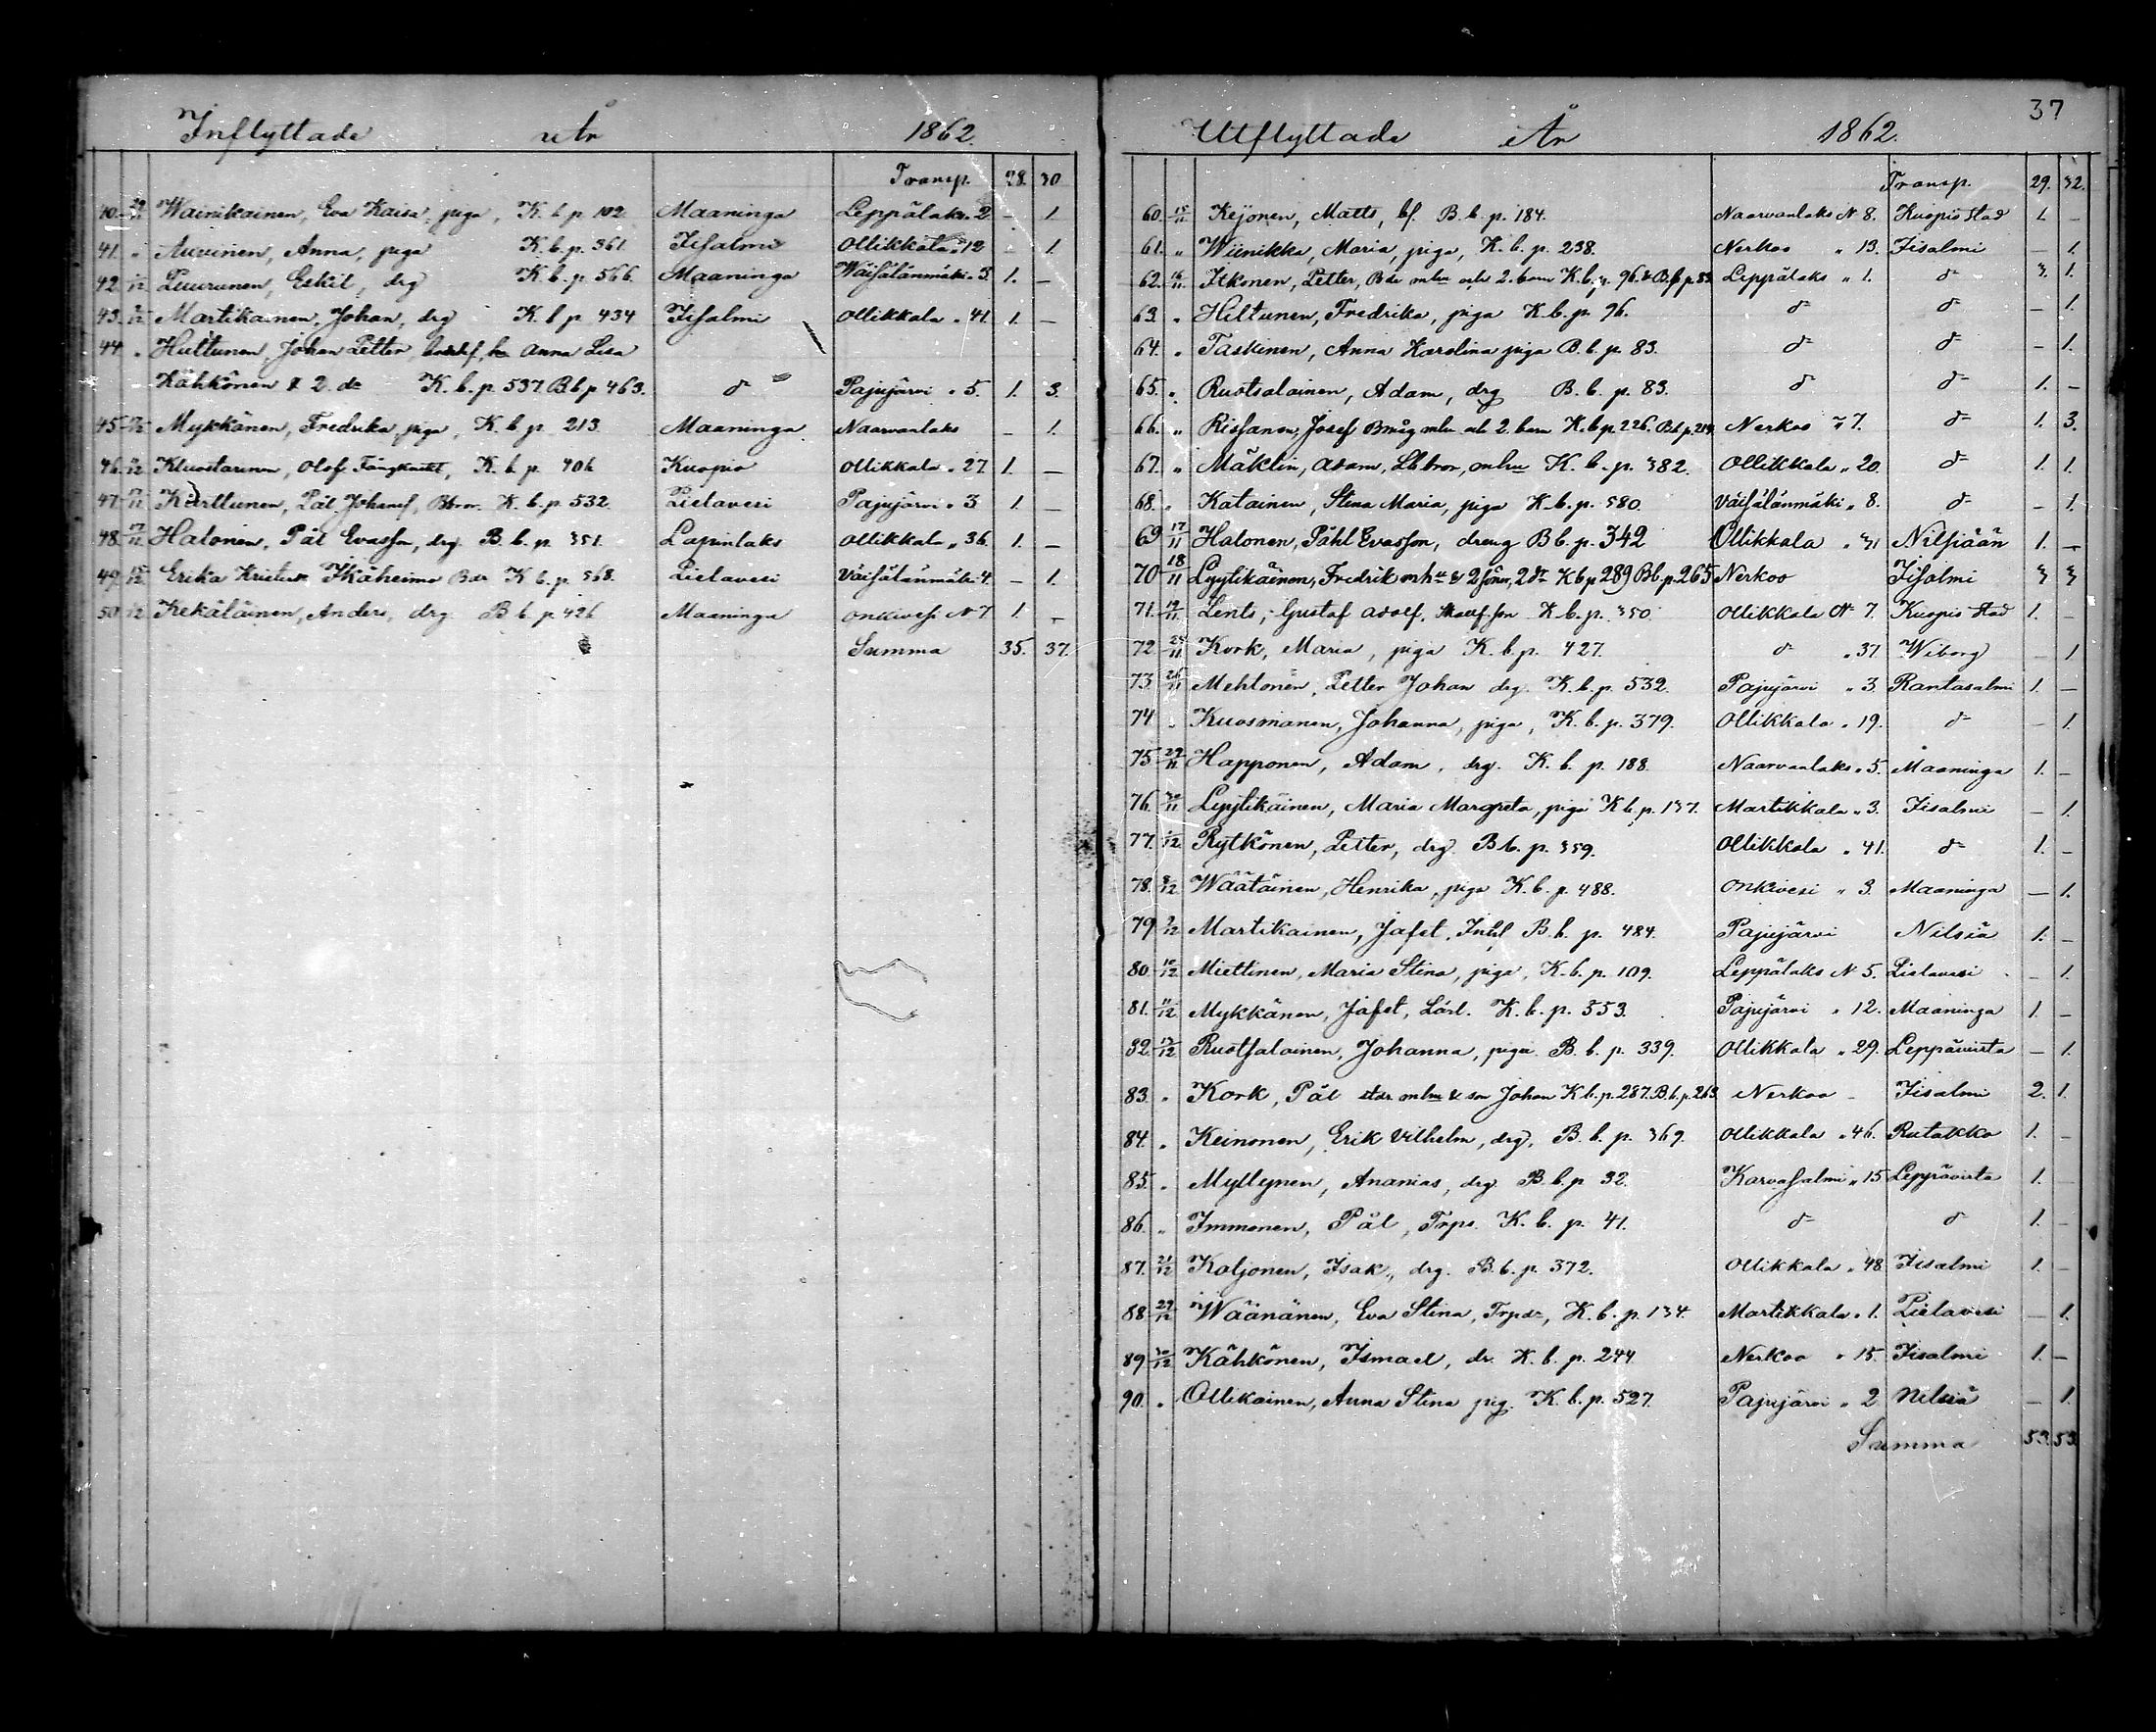 Inflyttade År 1862.
Transp. 28. 30
40. 29/11 Wainikainen, Eva Kaisa, piga, K. b. p. 102. Maaninga Leppälaks. 2 – 1.
41. " Auvinen, Anna, piga K. b. p. 361. Iisalmi Ollikkala " 12 – 1.
42. Puurunen, Eskil, drg K. b. p. 566. Maaninga Wäisälänmäki " 5. 1. –
43. Martikainen, Johan, drg K. b. p. 434 Iisalmi Ollikkala " 41. 1. –
44. " Hultunen, Johan Petter Anna Lisa
Kähkönen & 2. dr K. b. p. 537. B b p 463. d:o Pajujärvi " 5. 1. 3.
45. Mykkänen, Fredrika, piga, K. b. p. 213. Maaninga Naarvanlaks – 1.
46. Kluostarinen, Olof K. b. p. 406 Kuopio Ollikkala " 27. 1. –
47. Kärttunen, Pål Johansf, K. b. p. 532. Pielavesi Pajujärvi " 3 1. –
48. Halonen, Pål Evasson, drg. B. b. p. 351. Lapinlaks Ollikkala " 36. 1. –
49. Erika Kristina Ikäheimo K b. p. 568. Pielavesi Väisälänmäki 4. – 1.
50. Kekäläinen, Anders, drg. B b. p. 426 Maaninga Onkivesi N 7 1. –
Summa 35. 37.
37
Utflyttade År 1862.
Transp. 29. 32.
60. 15/11 Keijonen, Matts, bf. B. b. p. 184. Naarvanlaks N 8. Kuopio stad 1. –
61. " Wiinikka, Maria, piga, K. b. p. 238. Nerkoo " 13. Iisalmi – 1.
62. 16/11 Itkonen, Petter, Bde mhu och 2. barn K. b. p. 96. & B. b. p. 83. Leppälaks " 1. d:o 3. 1.
63. " Hiltunen, Fredrika, piga K. b. p. 96. d:o d:o – 1.
64. " Taskinen, Anna Karolina piga B. b. p. 83. d:o d:o – 1.
65. " Ruotsalainen, Adam, drg B. b. p. 83. d:o d:o 1. –
66. " Rissanen, Josef Bmåg mhu och 2. barn K. b. p. 226. B b. p. 214. Nerkoo " 7. d:o 1. 3.
67. " Mäklin, Adam, mhu K. b. p. 382. Ollikkala " 20. d:o 1. 1.
68. " Katainen, Stina Maria, piga K. b. p. 580. Väisälänmäki " 8. d:o – 1.
69 17/11 Halonen, Påhl Evasson, dreng B b. p. 342 Ollikkala " 31 Nilsiään 1. –
70 18/11 Lyytikäinen, Fredrik m hu & 2 söner, 2 dr K b p 289 B b. p. 265 Nerkoo Iisalmi 3 3
71. 19/11 Lents, Gustaf Adolf, K. b. p. 350. Ollikkala N 7. Kuopio stad 1. –
72. 25/11 Kork, Maria, piga K. b. p. 427. d:o " 37. Wiborg – 1
73 26/11 Mehtonen, Petter Johan drg. K. b. p. 532. Pajujärvi " 3. Rantasalmi 1. –
74 " Kuosmanen, Johanna, piga, K. b. p. 379. Ollikkala " 19. d:o – 1.
75 29/11 Happonen, Adam, drg. K. b. p. 188. Naarvanlaks " 5. Maaninga 1. –
76. 30/11 Lyytikäinen, Maria Margreta, piga K b. p. 137. Martikkala " 3. Iisalmi – 1.
77. 1/12 Rytkönen, Petter, drg. B b. p. 359. Ollikkala " 41. d:o 1. –
78. 8/12 Wäätäinen, Henrika, piga K. b. p. 488. Onkivesi " 3. Maaninga – 1.
79 9/12 Martikainen, Jafet, Inhl B. b. p. 484. Pajujärvi Nilsiä 1. –
80. 10/12 Miettinen, Maria Stina, piga, K. b. p. 109. Leppälaks N 5. Pielavesi – 1.
81. 11/12 Mykkänen, Jafet, Lärl. K. b. p. 553. Pajujärvi " 12. Maaninga 1. –
82. 13/12 Ruotsalainen, Johanna, piga B. b. p. 339. Ollikkala " 29. Leppävirta – 1.
83. " Kork, Pål mhu & son Johan K b. p. 287. B. b. p. 263. Nerkoo – Iisalmi 2. 1.
84. " Keinonen, Erik Vilhelm, drg, B. b. p. 369. Ollikkala " 46. Rutakko 1. –
85. " Myllynen, Ananias, drg B. b. p 32. Karvasalmi " 15 Leppävirta 1. –
86. " Immonen, Pål, Trps. K. b. p. 41. d:o d:o 1. –
87. 21/12 Koljonen, Isak, drg. B. b. p. 372. Ollikkala " 48 Iisalmi 1. –
88. 29/12 Wäänänen, Eva Stina, Trpdr, K. b. p. 134. Martikkala " 1. Pielavesi – 1.
89 30/12 Kähkönen, Ismael, dr. K. b. p. 244. Nerkoo " 15. Iisalmi 1. –
90. " Ollikainen, Anna Stina pig. K. b. p. 527. Pajujärvi " 2 Nilsiä – 1.
Summa 53. 53.